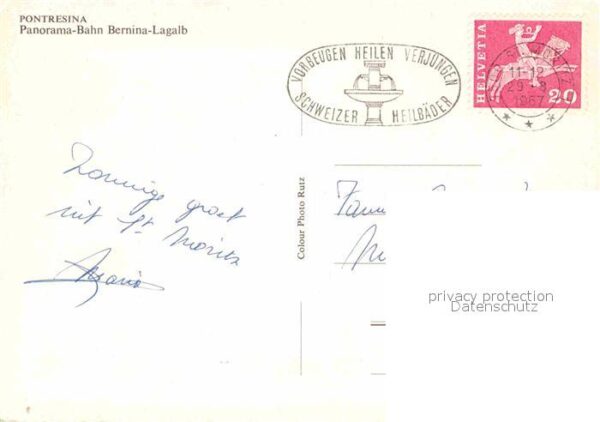 PONTRESINA
Panorama-Bahn Bernina-Lagalb
VORBEUGEN HEILEN VERJUNGEN
SCHWEIZER HEILBÄDER
HELVETIA
20
ST. MORITZ
11-12
29
1967
Zonnige groet
uit St. Moritz
Colour Photo Rutz
privacy protection
Datenschutz